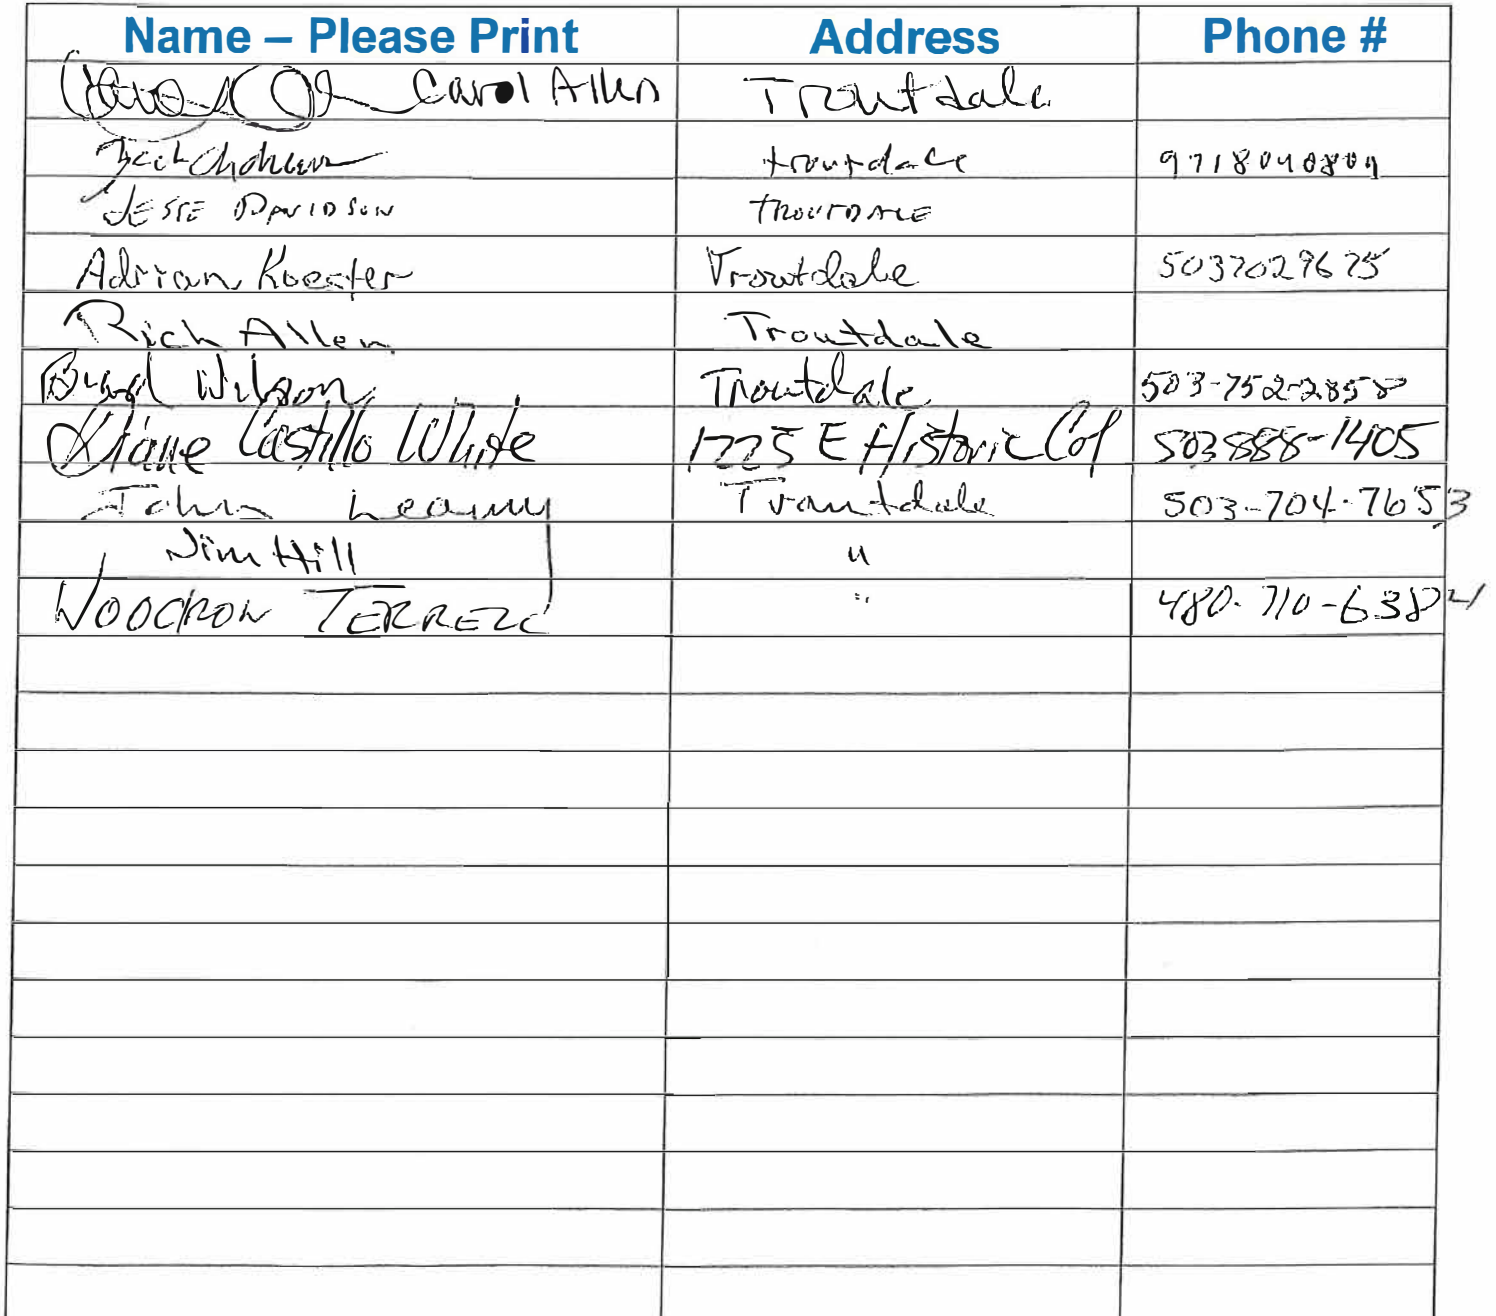 Name – Please Print Address Phone #
Carol Allen Troutdale
troutdale 9718040804
JESSE DAVIDSON TROUTDALE
Adrian Koester Troutdale 5037029675
Rich Allen Troutdale
Brad Wilson Troutdale 503-752-2858
Diane Castillo White 1225 E Historic Col 503 888-1405
John Leamy Troutdale 503-704-7653
Jim Hill "
WOODROW TERRELL " 480-710-6384